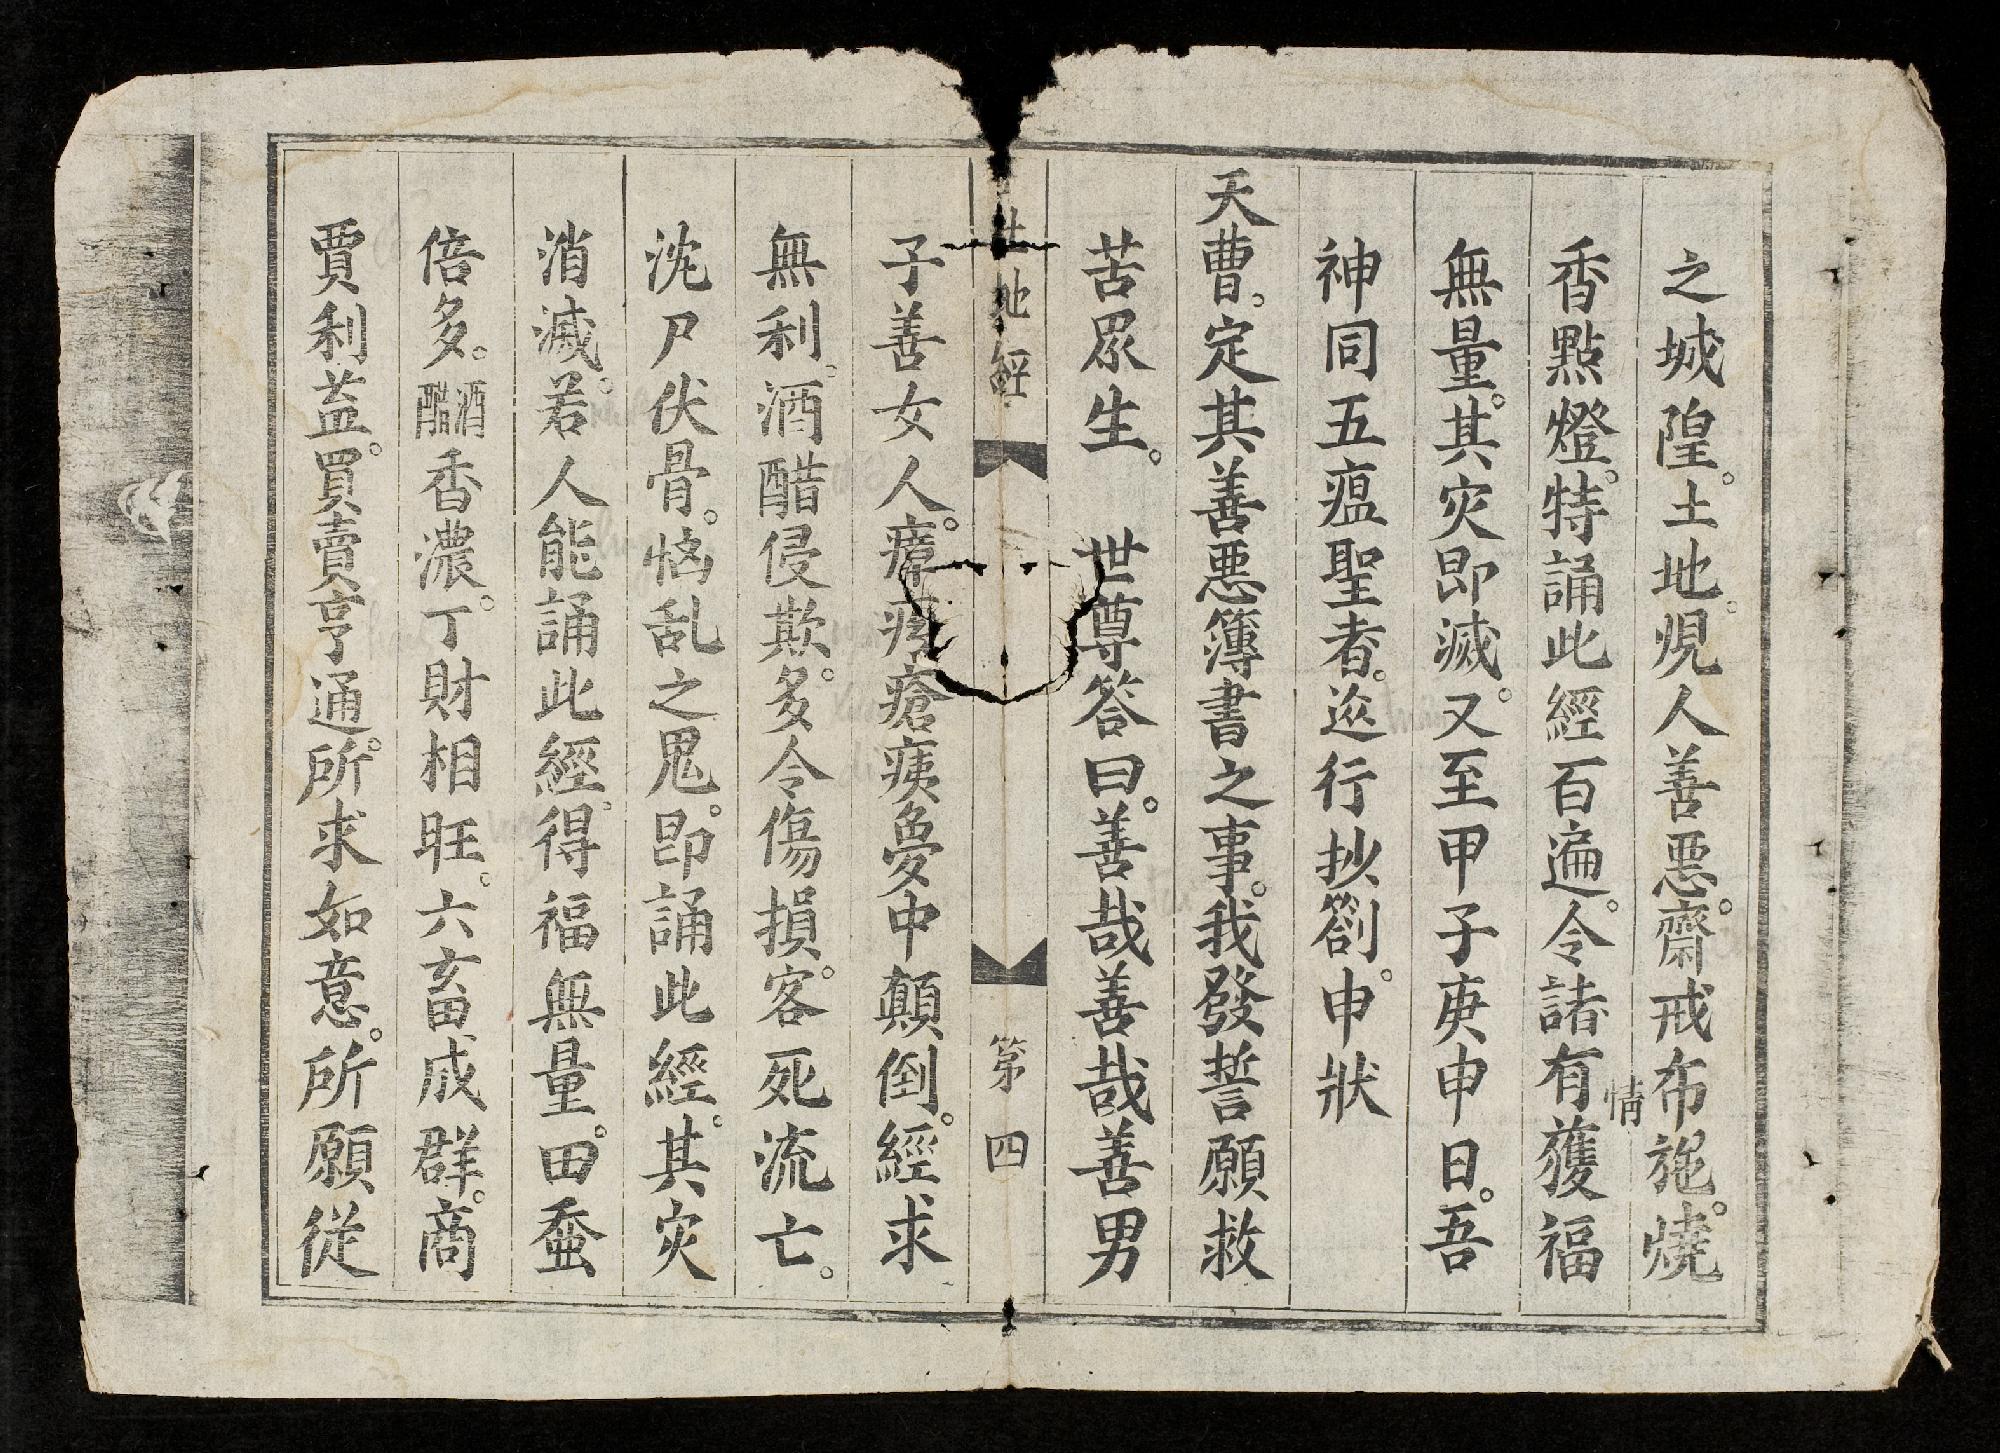 之城隍。土地。覌人善悪。齋戒布施。燒
香點燈。特誦此經百遍。令諸有情獲福
無量。其灾即滅。又至甲子庚申日。吾
神同五瘟聖者。廵行抄劄。申狀
天曹。定其善悪簿書之事。我發誓願救
苦眾生。世尊答曰。善哉善哉善男
土地經 第四
子善女人。瘴疾瘡痍夢中顛倒。經求
無利。酒醋侵欺。多令傷損。客死流亡。
沈尸伏骨。惱乱之鬼。即誦此經。其灾
消滅。若人能誦此經。得福無量。田蚕
倍多。酒醋香濃。丁財相旺。六畜成群。商
賈利益。買賣亨通。所求如意。所願從